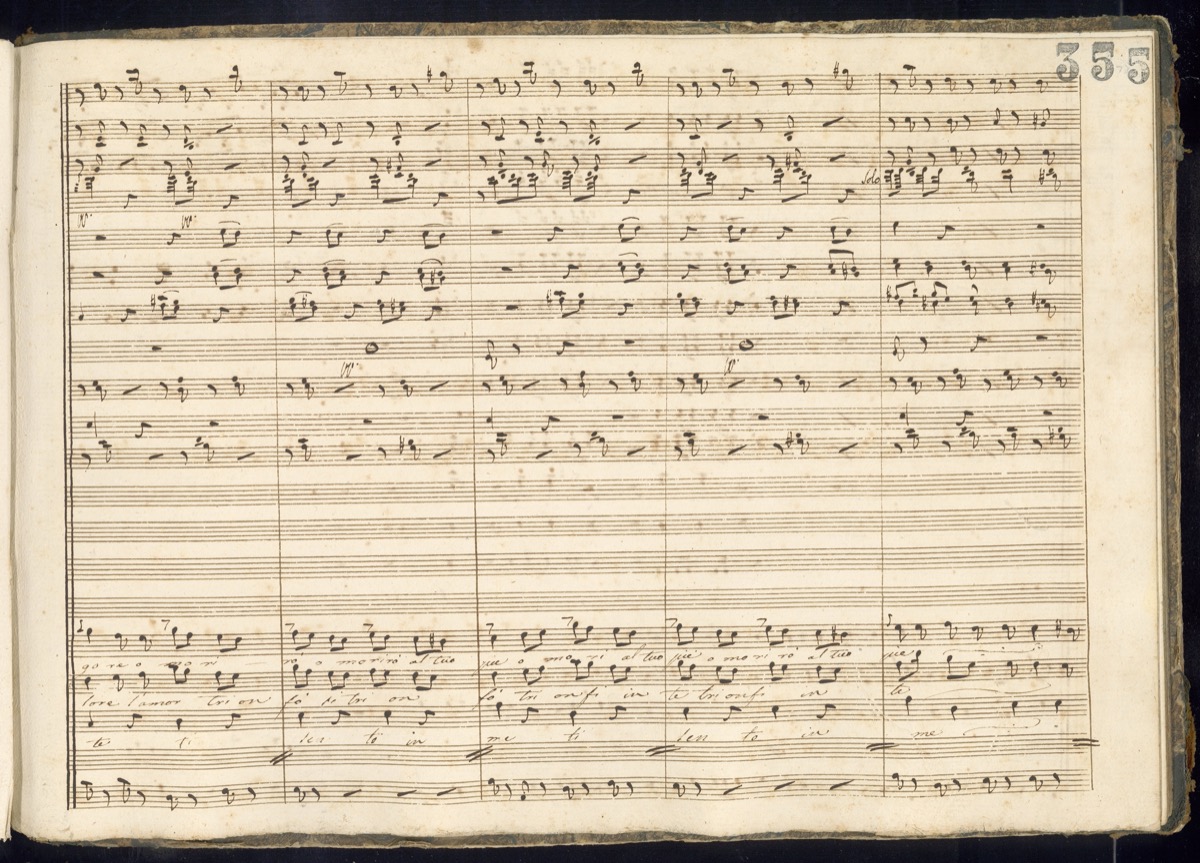 355
Solo
go re o mo ri rò o morirò al tuo piè o mo ri al tuo piè o mo ri rò al tuo piè
lore l'amor tri on fò di tri on fò tri onfi in te trionfi in te
te ti sen to in me ti sen to in me